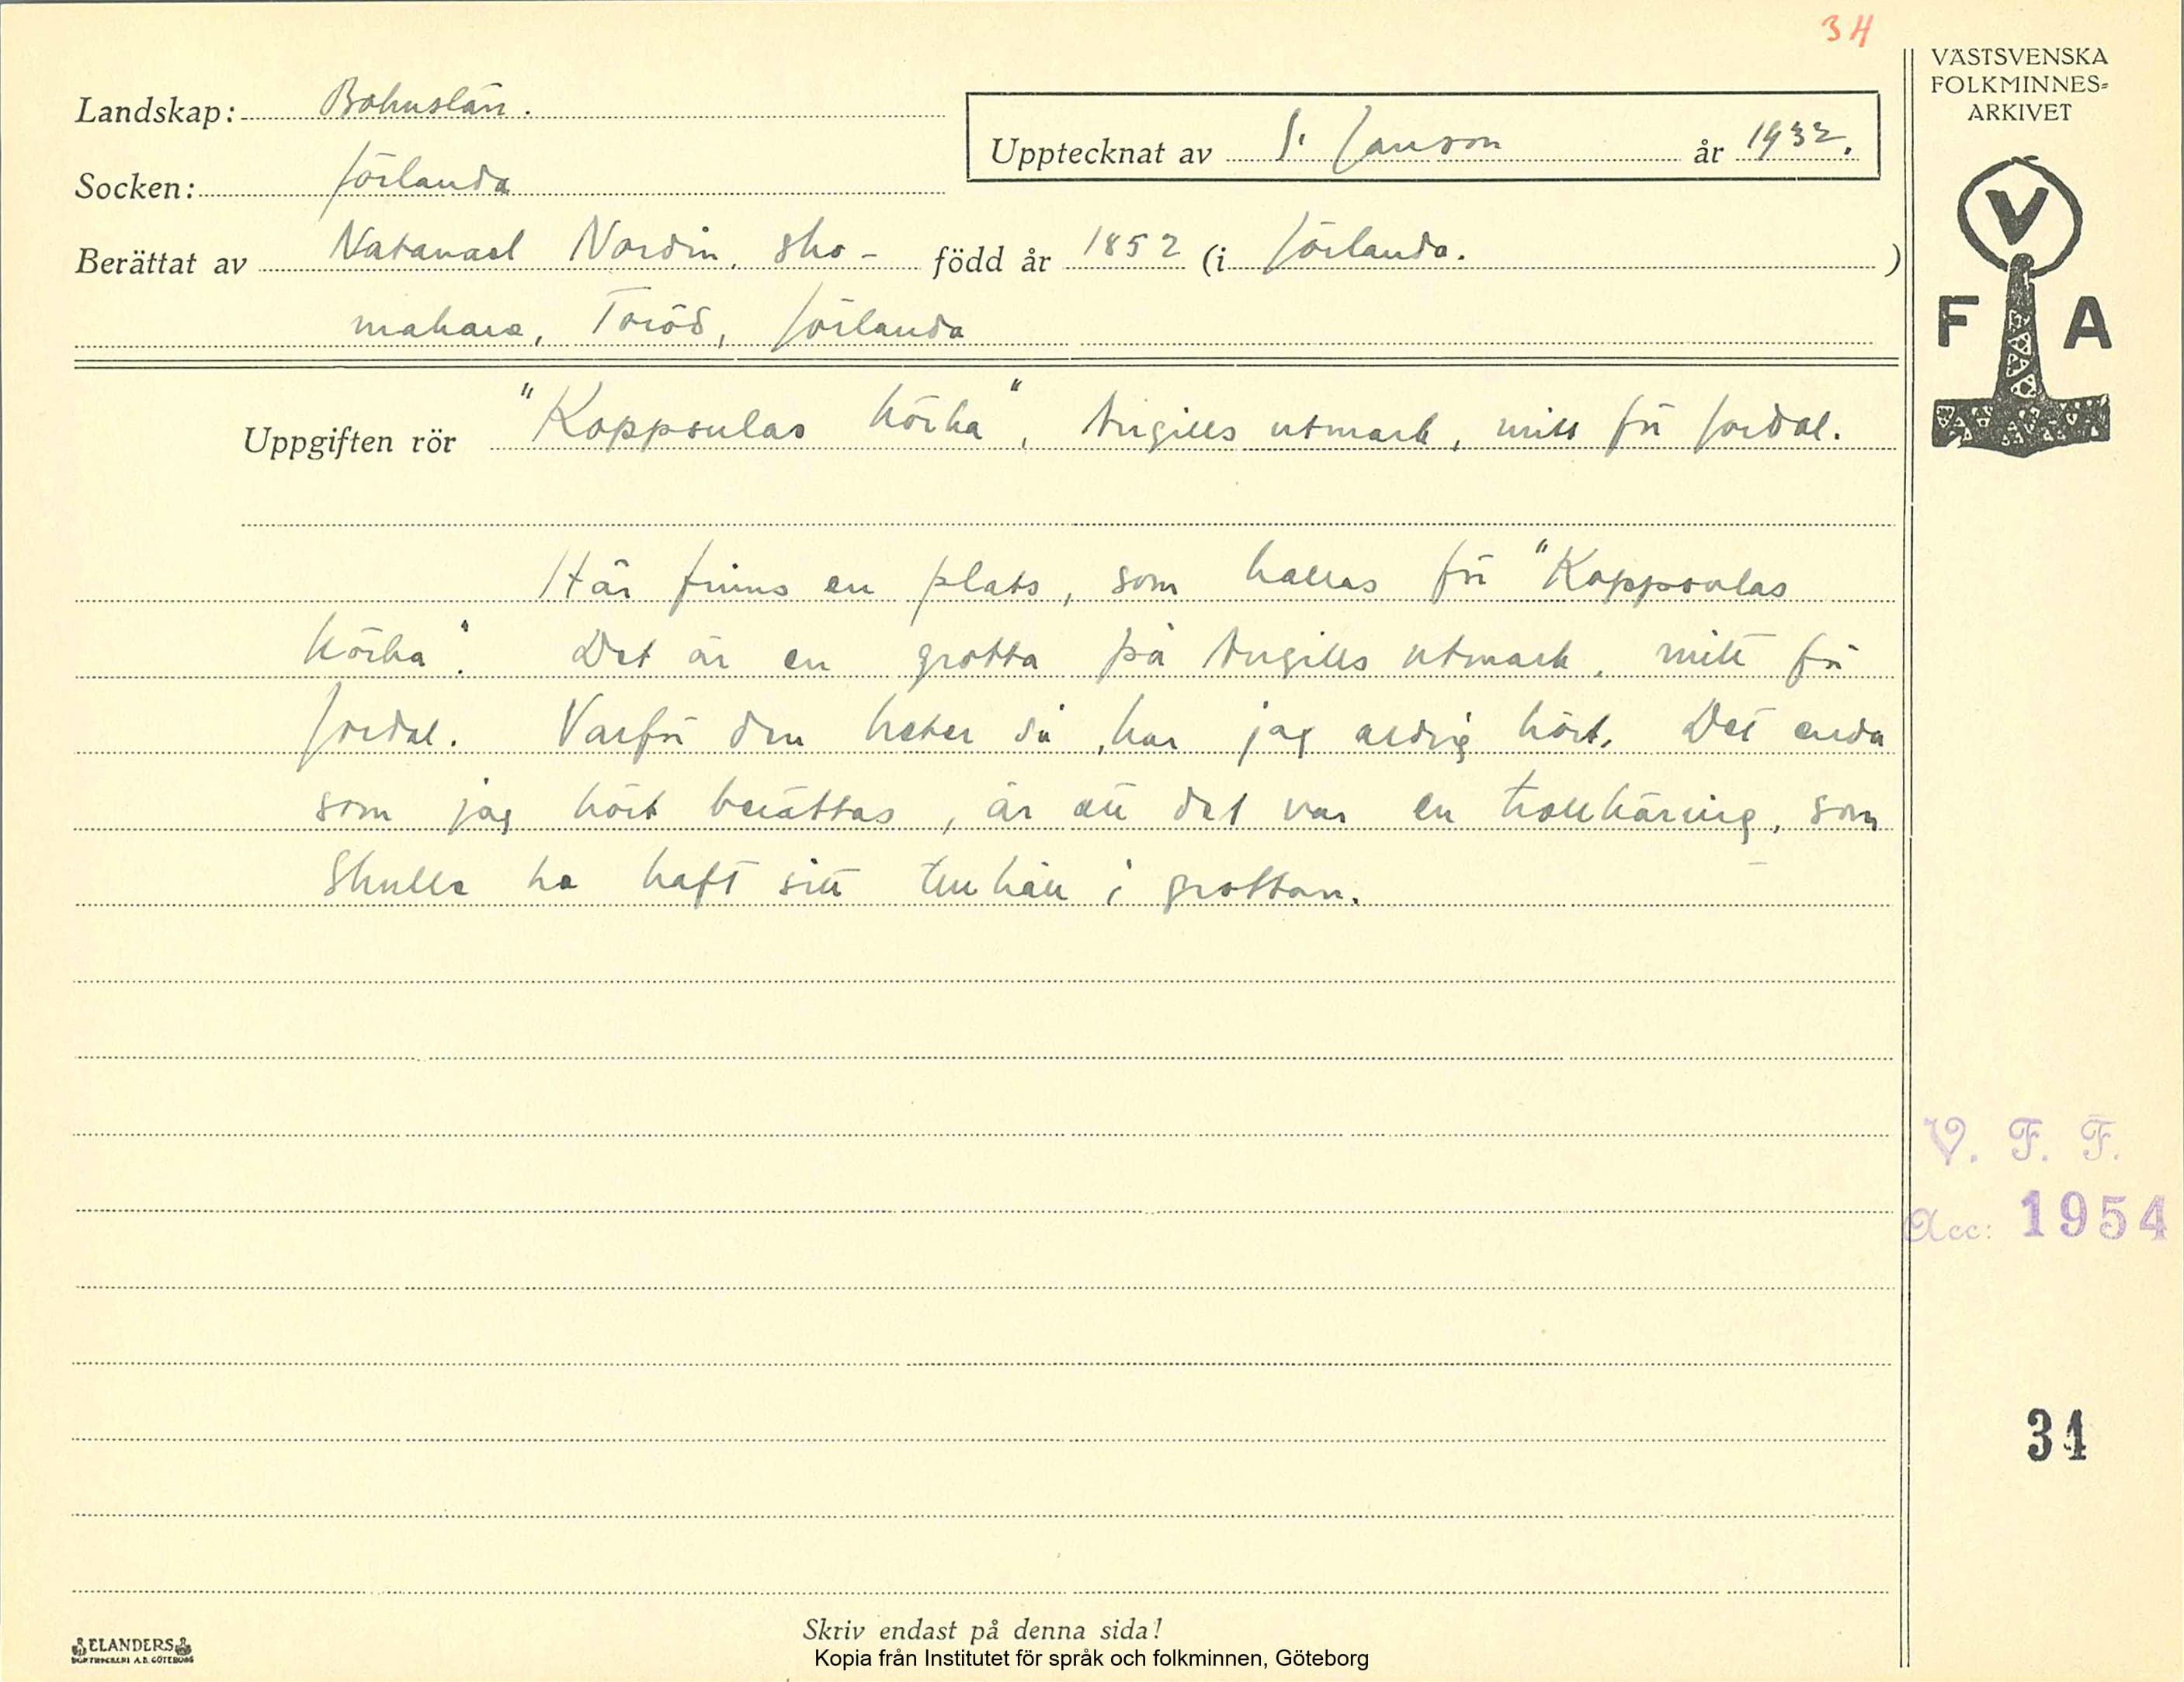 34
VÄSTSVENSKA
FOLKMINNES-
ARKIVET
V
F A
Landskap: Bohuslän.
Upptecknat av S. Janson år 1932.
Socken: Jörlanda
Berättat av Natanael Nordin, sko- född år 1852 (i Jörlanda. )
makare, Toröd, Jörlanda
Uppgiften rör "Koppsulas körka", utmark, mitt för Jordal.
Här finns en plats, som kallas för "Koppsulas
körka". Det är en grotta på utmark, mitt för
Jordal. Varför den heter så, har jag aldrig hört. Det enda
som jag hört berättas, är att det var en trollkäring, som
skulle ha haft sitt tillhåll i grottan.
V. F. F.
Acc: 1954
34
Skriv endast på denna sida!
ELANDERS
BOKTRYCKERI A.B. GÖTEBORG
Kopia från Institutet för språk och folkminnen, Göteborg